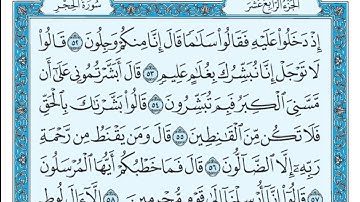 الجزء الرابع عشر سورة الحجر
إِذْ دَخَلُوا۟ عَلَيْهِ فَقَالُوا۟ سَلَـٰمًا قَالَ إِنَّا مِنكُمْ وَجِلُونَ ٥٢ قَالُوا۟
لَا تَوْجَلْ إِنَّا نُبَشِّرُكَ بِغُلَـٰمٍ عَلِيمٍ ٥٣ قَالَ أَبَشَّرْتُمُونِى عَلَىٰٓ أَن
مَّسَّنِىَ ٱلْكِبَرُ فَبِمَ تُبَشِّرُونَ ٥٤ قَالُوا۟ بَشَّرْنَـٰكَ بِٱلْحَقِّ
فَلَا تَكُن مِّنَ ٱلْقَـٰنِطِينَ ٥٥ قَالَ وَمَن يَقْنَطُ مِن رَّحْمَةِ
رَبِّهِۦٓ إِلَّا ٱلضَّآلُّونَ ٥٦ قَالَ فَمَا خَطْبُكُمْ أَيُّهَا ٱلْمُرْسَلُونَ
٥٧ قَالُوٓا۟ إِنَّآ أُرْسِلْنَآ إِلَىٰ قَوْمٍ مُّجْرِمِينَ ٥٨ إِلَّآ ءَالَ لُوطٍ